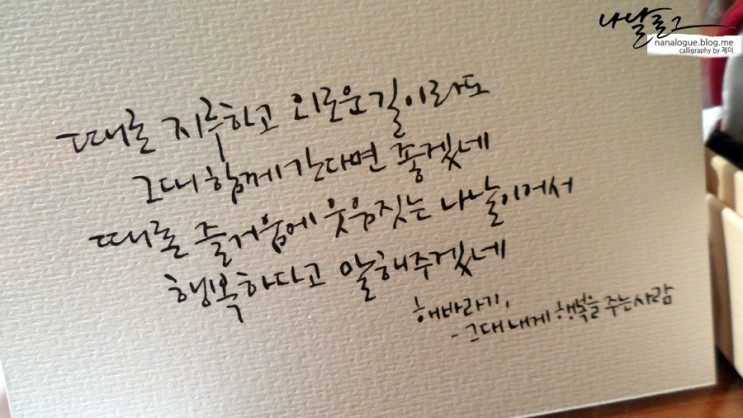 나날로그
nanalogue.blog.me
calligraphy by 제이
때로 지루하고 외로운 길이라도
그대 함께 간다면 좋겠네
때로 즐거움에 웃음짓는 나날이어서
행복하다고 말해주겠네
해바라기,
- 그대 내게 행복을 주는 사람